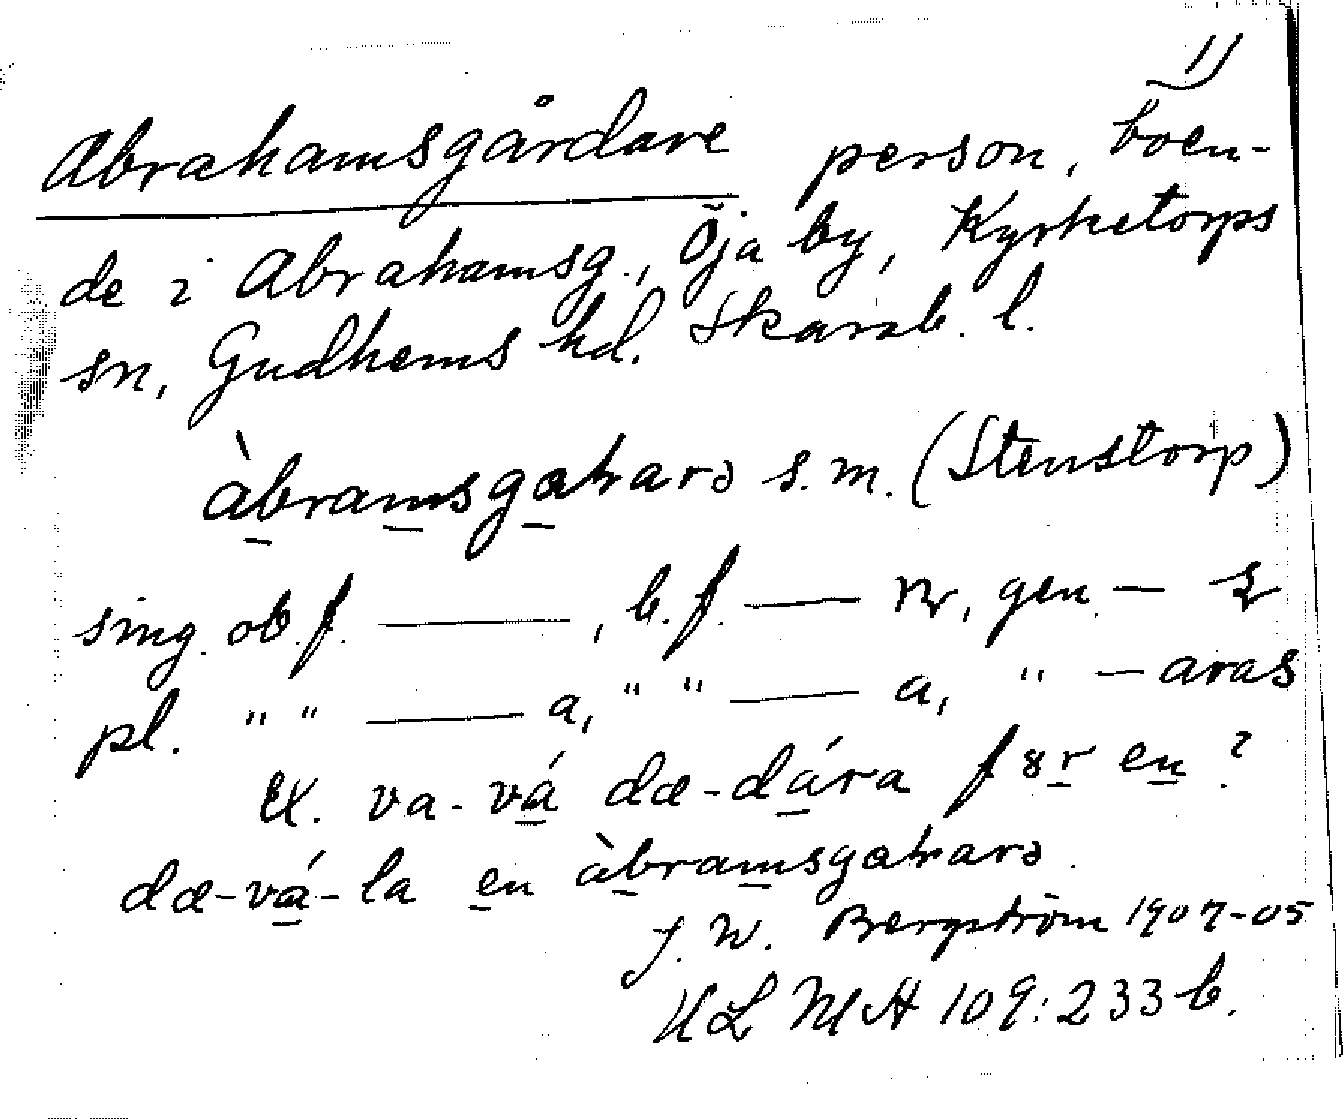 11
Abrahamsgårdare person, boen-
de i Abrahamsg., Öja by, Kyrketorps
sn, Gudhems hd. Skarab. l.
àbramsgaharə s.m. (Stenstorp)
sing. ob.f. ——, b.f. —— gen. —
pl. " " —— a, " " —— a, " — aras
Ex. va-vá dæ-dára f8r en?
dæ-vá-la en àbramsgaharə.
J. W. Bergström 1907-05
ULMA 109:233 b.